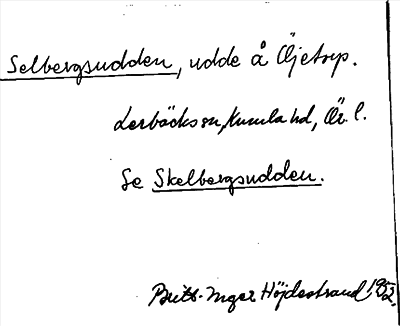 Selbergsudden, udde å Öjetorp.
Lerbäcks sn, Kumla hd, Ör. l.
Se Skelbergsudden.
Britt-Inger Höjdestrand 1952.